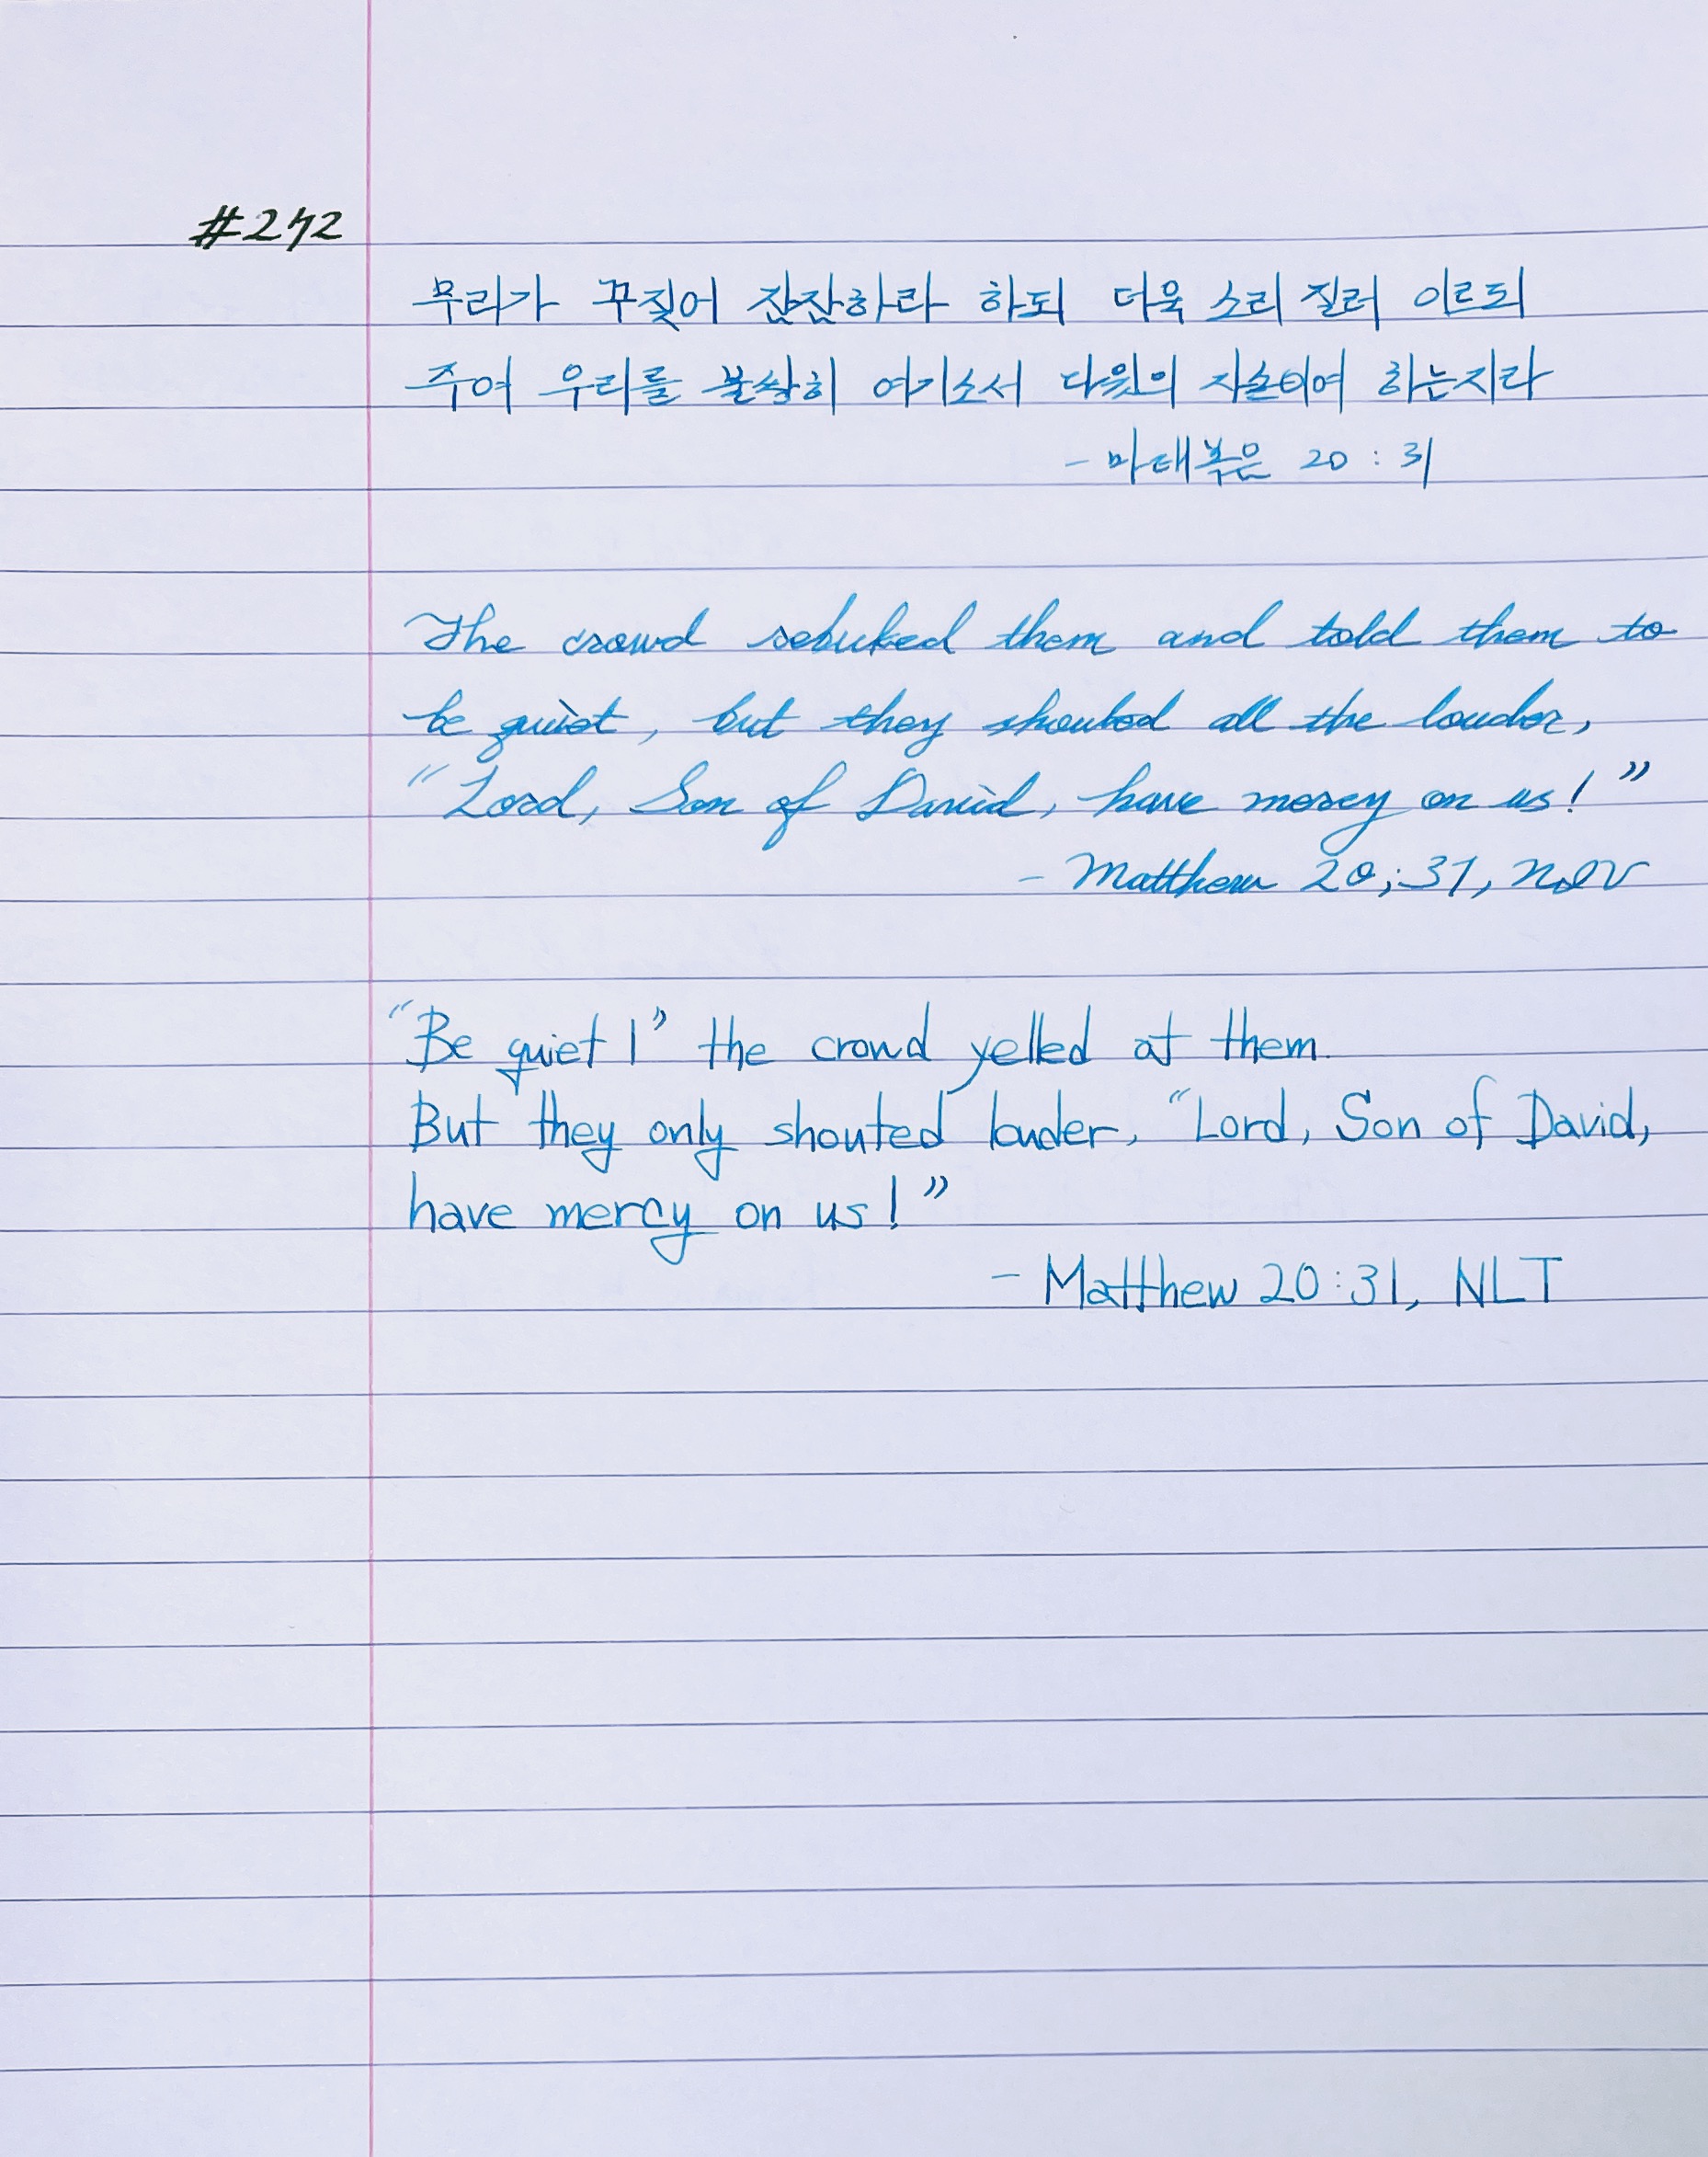 #272
무리가 꾸짖어 잠잠하라 하되 더욱 소리 질러 이르되
주여 우리를 불쌍히 여기소서 다윗의 자손이여 하는지라
- 마태복음 20 : 31
The crowd rebuked them and told them to
be quiet, but they shouted all the louder,
“Lord, Son of David, have mercy on us!”
- Matthew 20:31, NIV
“Be quiet!” the crowd yelled at them.
But they only shouted louder, “Lord, Son of David,
have mercy on us!”
- Matthew 20:31, NLT